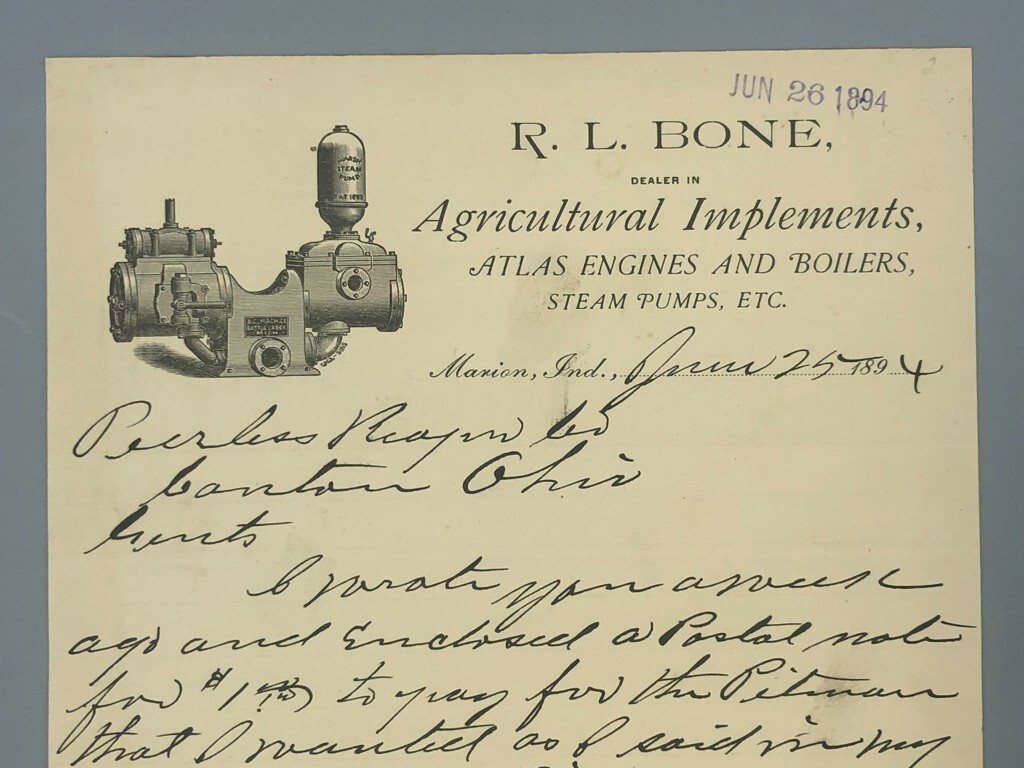 JUN 26 1894
R. L. BONE,
DEALER IN
Agricultural Implements,
ATLAS ENGINES AND BOILERS,
STEAM PUMPS, ETC.
MARSH
STEAM
PUMP
PAT 1889
B.C. MACH. CO
BATTLE CREEK
MICH
Marion, Ind., June 25 1894
Peerless Reaper Co
Canton Ohio
Gents
I wrote you a week
ago and Enclosed a Postal note
for $1 to pay for the Pitman
that I wanted as I said in my